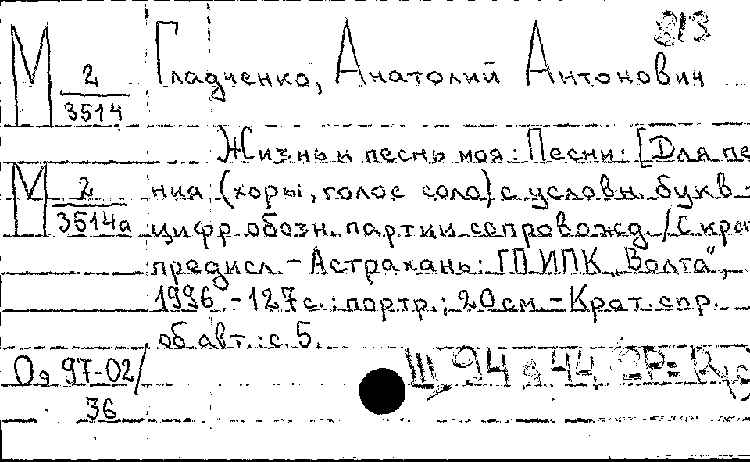 913
М 2/3514 Гладченко, Анатолий Антонович
Жизнь и песнь моя: Песни: [Для пе
М 2/3514а ния (хоры, голос соло) с условн. букв.-
цифр. обозн. партии сопровожд. / С крат
предисл. - Астрахань: ГП ИПК "Волга",
1996. - 127 с.: портр.; 20 см. - Крат. спр.
об авт.: с. 5.
Оэ 97-02/
36
Щ 94 я 44 2Р=Рус